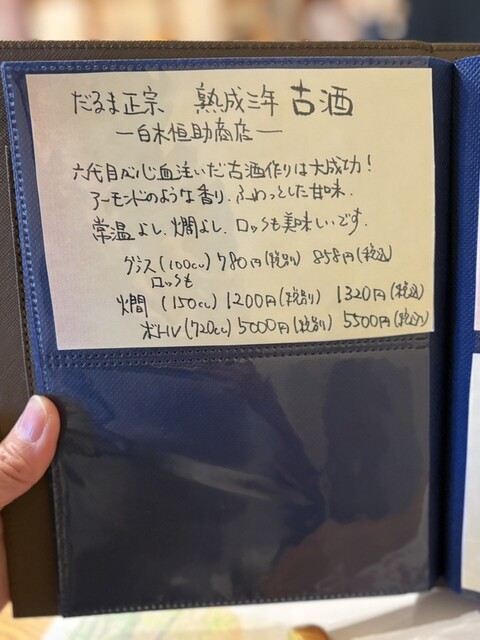 だるま正宗 熟成三年 古酒
ー白木恒助商店ー
六代目が心血注いだ古酒作りは大成功!
アーモンドのような香り、ふわっとした甘味、
常温よし、燗よし、ロックも美味しいです。
グラス(100cc) 780円(税別) 858円(税込)
ロックも
燗 (150cc) 1200円(税別) 1320円(税込)
ボトル(720cc) 5000円(税別) 5500円(税込)